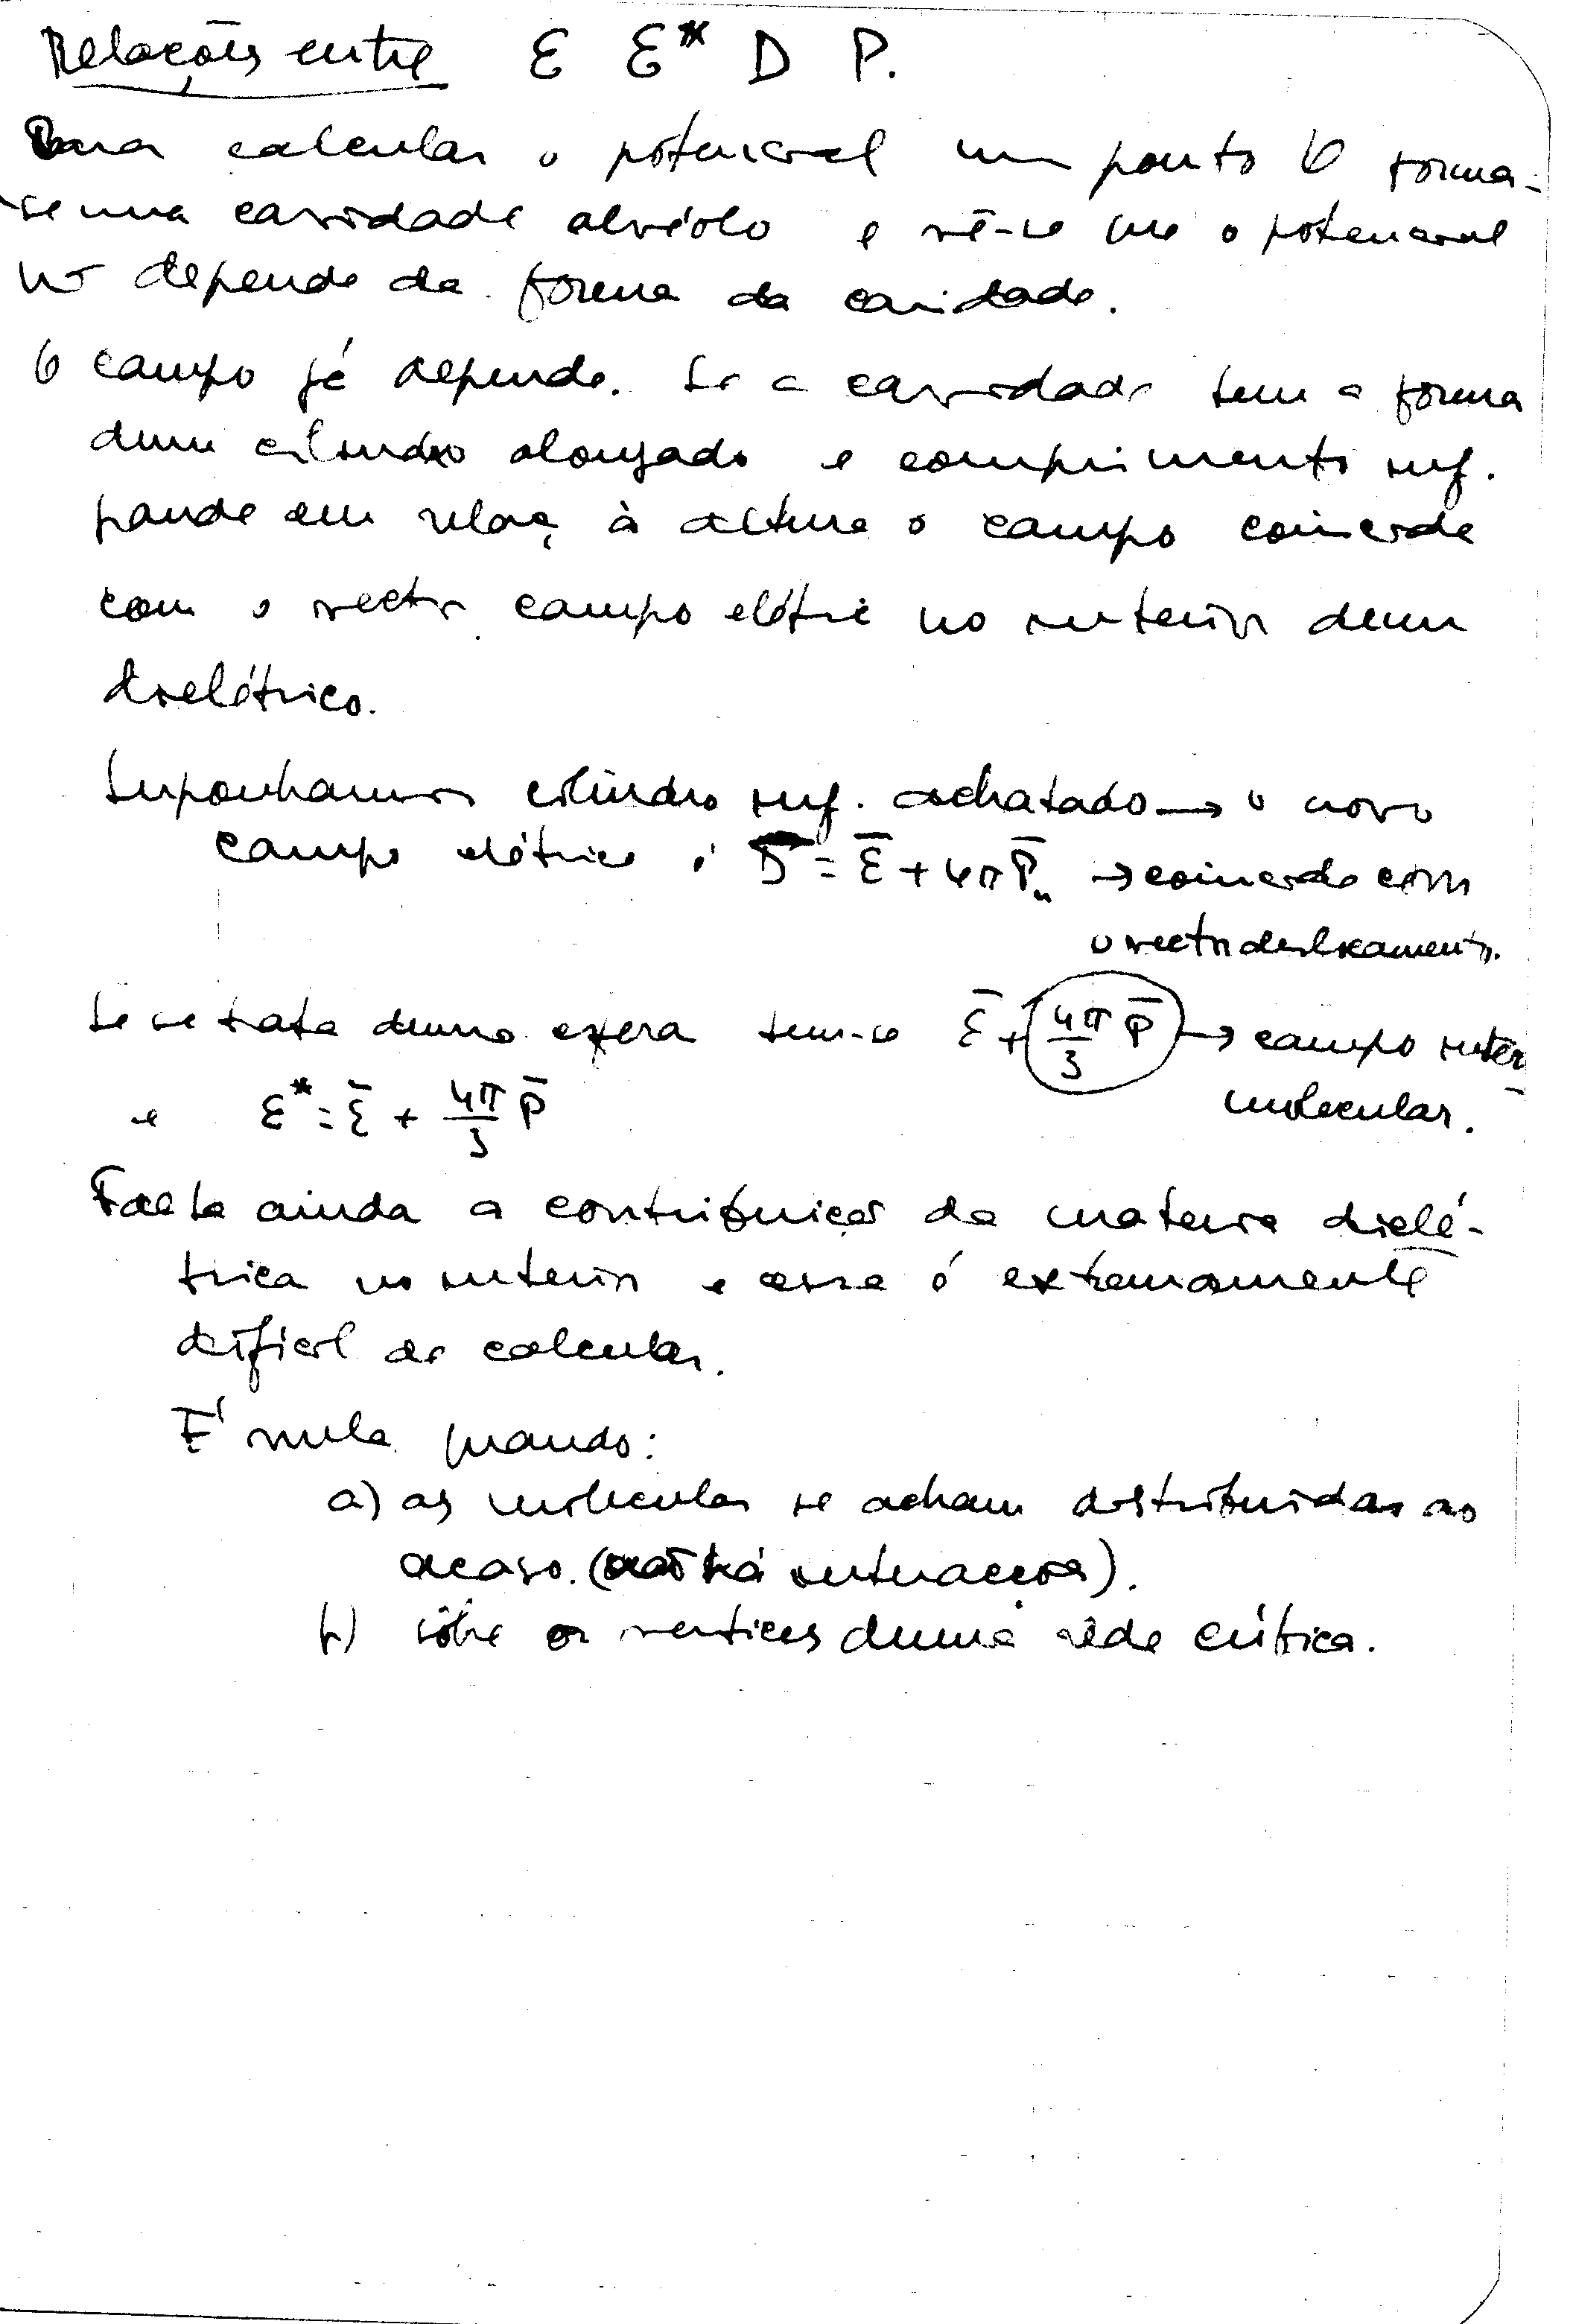 Relações entre ε ε* D P.
Para calcular o potencial num ponto O forma-
se uma cavidade alvéolo e vê-se que o potencial
não depende da forma da cavidade.
O campo já depende. Se a cavidade tem a forma
dum cilindro alongado e comprimento suf.
grande em relaç à altura o campo coincide
com o vector campo elétric no interior dum
dielétrico.
Suponhamos cilindro suf. achatado → o novo
campo elétrico é D̄ = ε̄ + 4π P̄n → coincide com
o vector deslocamento.
Se se trata duma esfera tem-se ε̄ + 4π/3 P̄ → campo inter
molecular.
e ε* = ε̄ + 4π/3 P̄
Falta ainda a contribuição da materia dielé-
trica no interior e essa é extremamente
difícil de calcular.
É nula quando:
a) as moléculas se acham distribuidas ao
acaso. (não há interacções).
b) sôbre os vertices duma rêde cúbica.